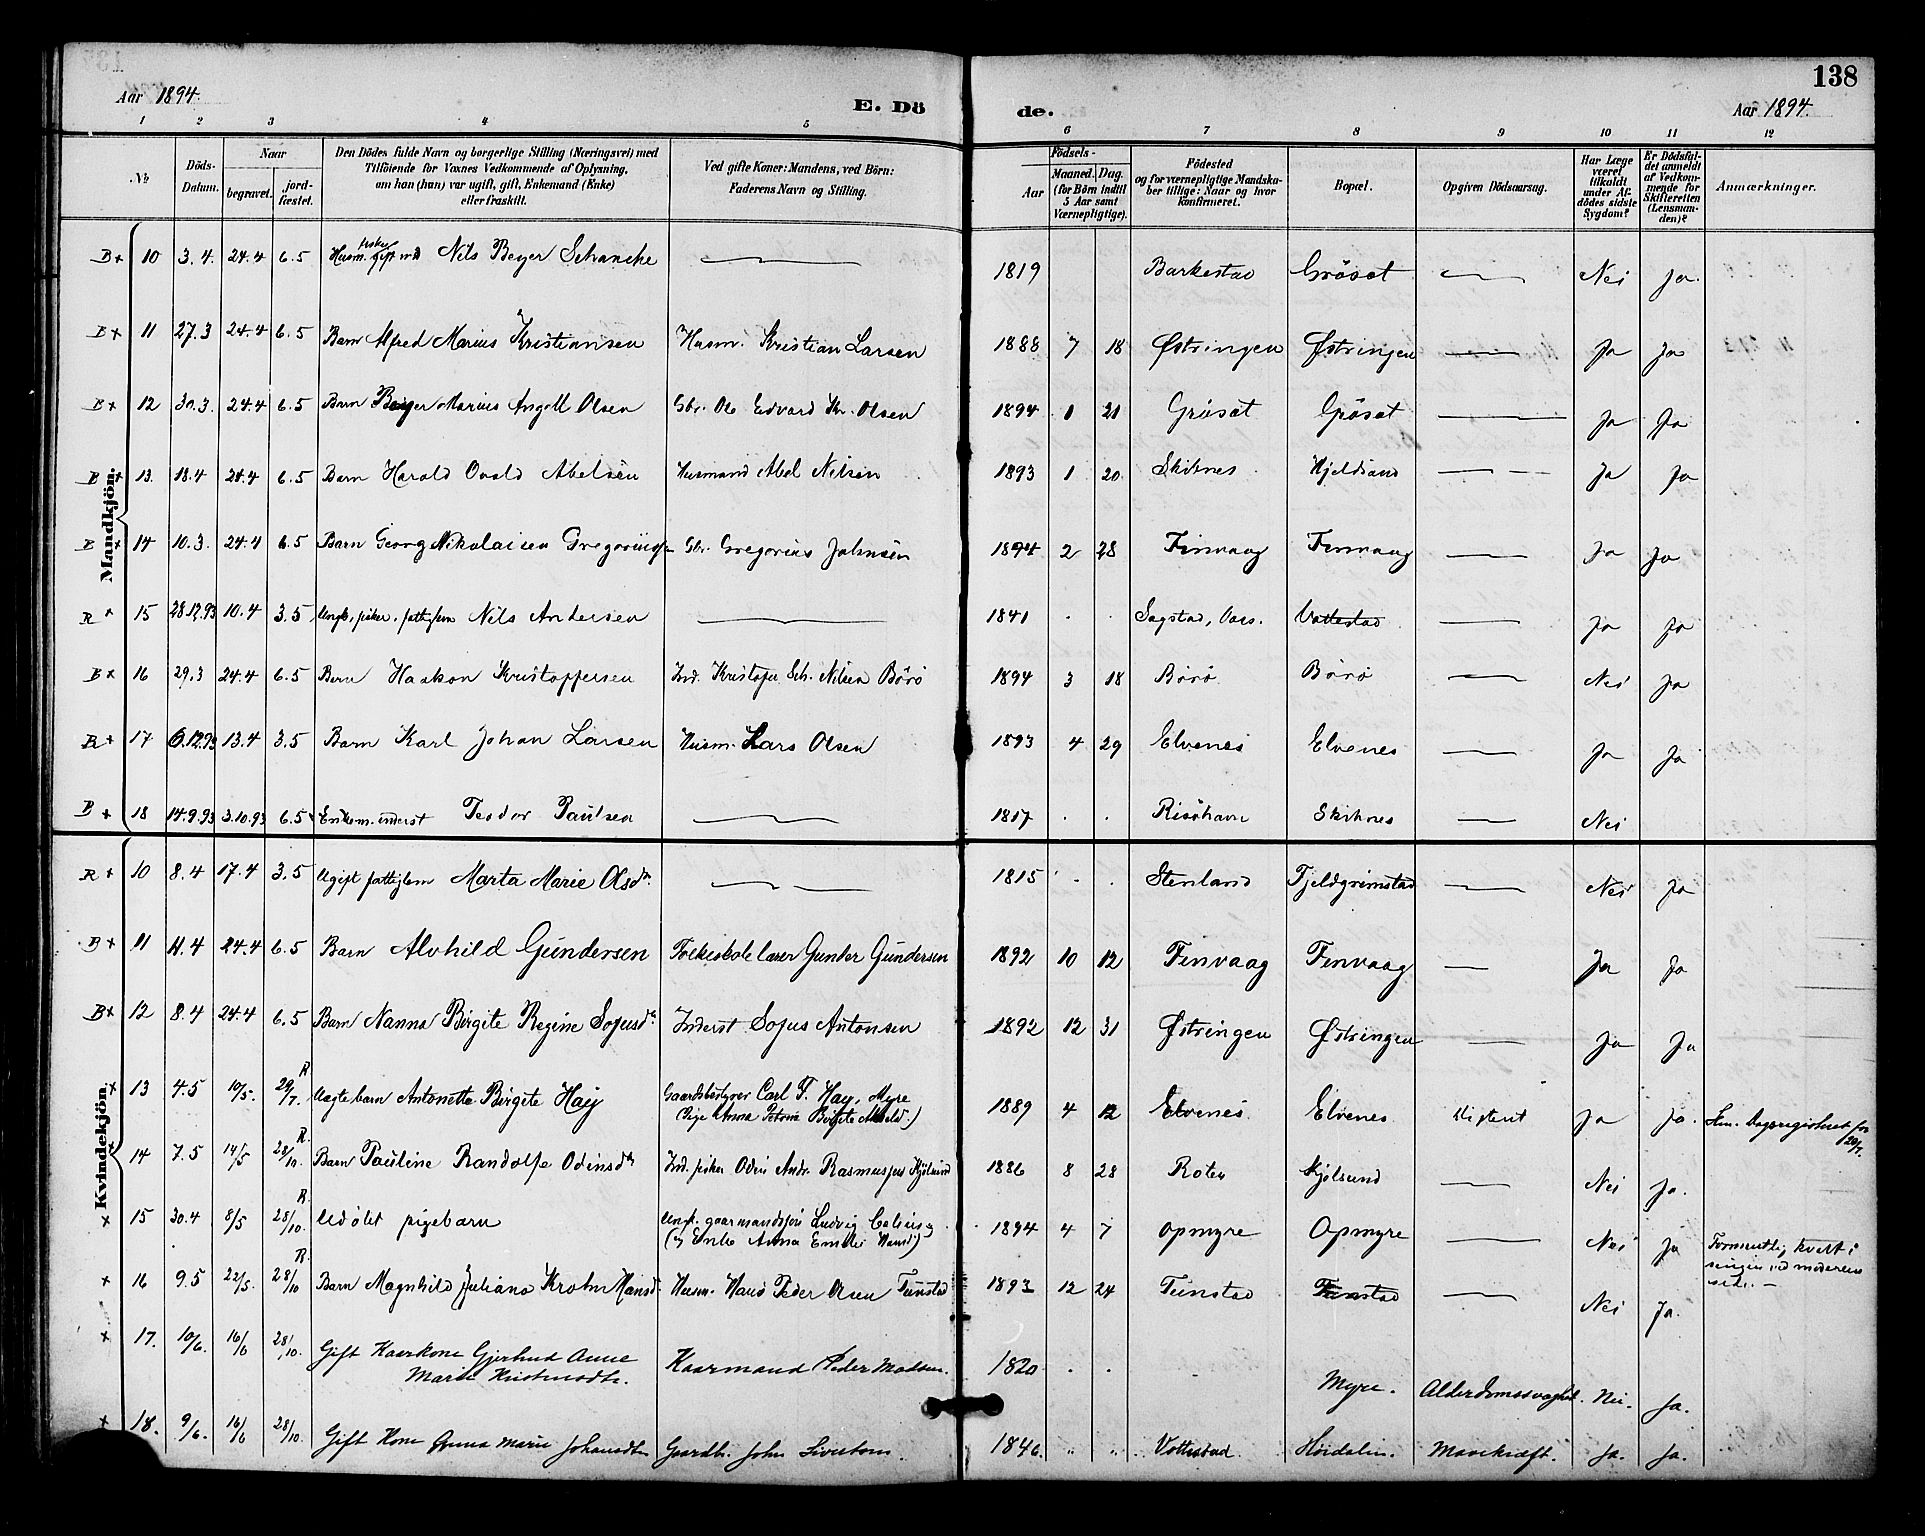 138
Aar 1894. E. Döde. Aar 1894.
1 2 3 4 5 6 7 8 9 10 11 12
No. Döds-Datum. Naar begravet. jordfæstet. Den Dödes fulde Navn og borgerlige Stilling (Næringsvei) med Tilföiende for Voxnes Vedkommende af Oplysning, om han (hun) var ugift, gift, Enkemand (Enke) eller fraskilt. Ved gifte Koner: Mandens, ved Börn: Faderens Navn og Stilling. Födsels- Aar Maaned. Dag. (for Börn indtil 5 Aar samt Værnepligtige). Födested og for værnepligtige Mandskaber tillige: Naar og hvor konfirmeret. Bopæl. Opgiven Dödsaarsag. Har Læge været tilkaldt under Afdödes sidste Sygdom? Er Dödsfaldet anmeldt af Vedkommende for Skifteretten (Lensmanden)? Anmærkninger.
Mandkjön.
B+ 10 3.4. 24.4 6.5 Husm. fisker gift md Nils Beyer Schancke — 1819 Barkestad Grösöt — Nei Ja.
B+ 11 27.3 24.4 6.5 Barn Alfred Marius Kristiansen Husm. Kristian Larsen 1888 7 18 Østringen Østringen — Ja Ja
B+ 12 30.3. 24.4 6.5 Barn Beyer Marius Angell Olsen Gbr. Ole Edvard Kr. Olsen 1894 1 21 Gröset Gröset — Ja Ja
B+ 13. 18.4 24.4 6.5 Barn Harald Ovald Abelsen Husmand Abel Nilsen 1893 1 20. Skiknes Hjeldsand — Ja Ja
B+ 14 10.3. 24.4 6.5 Barn Georg Nikolaisen Gregorius Gbr. Gregorius Johnsen 1894 2 28 Finvaag Finvaag — Ja Ja
R+ 15 28.12.93 10.4 3.5 Ungk. fisker, fattiglem Nils Andersen — 1841 . . Sagstad, Vors. Vottestad — Ja Ja
B+ 16 29.3 24.4 6.5 Barn Haakon Kristoffersen Ind. Kristofer Sch. Nilsen Börö 1894 3 18 Börö Börö — Nei Ja
R+ 17 6.12.93 13.4 3.5 Barn Karl Johan Larsen Husm. Lars Olsen 1893 4 29 Elvenes Elvenes — Ja Ja
B+ 18 14.9.93 3.10.93 6.5 Enkem. inderst Teodor Paulsen — 1817 . . Risöhavn Skiknes — Nei
Kvindekjön.
R+ 10 8.4 17.4 3.5 Ugift fattiglem Marta Marie Olsdr. — 1815 . . Stenland Tjeldgrimstad — Nei Ja
B+ 11 11.4 24.4 6.5 Barn Alvhild Gundersen Folkeskolelærer Gunder Gundersen 1892 10 12 Finvaag Finvaag — Ja Ja
B+ 12 8.4 24.4 6.5 Barn Nanna Birgite Regine Sofusdr. Inderst Sofus Antonsen 1892 12 31 Østringen Østringen — Ja Ja
+ 13 4.5 10/5. R 29/7. Uægte barn Antonette Birgite Hay Gaardsbestyrer Carl F. Hay, Myre
(Pige Anna Petona Birgite) 1889 4 12 Elvenes Elvenes Difterit Ja Ja. Lm. Dagsregisteret for 20/7.
+ 14 7.5 14/5 R. 28/10. Barn Pauline Randolfe Odinsdr. Ind. fisker Odin Andr. Rasmussen Kjölsund 1886 8 28 Roten Kjölsund — Nei Ja.
+ 15 30.4 8/5 R. 28/10. Udöbt pigebarn Ungk. gaarmandssön Ludvig
(og Enke Anna Emilie Hansd.) 1894 4 7 Opmyre Opmyre — Nei Ja Formentlig kvalt i sengen ved moderens side. —
+ 16 9.5 22/5. R. 28/10 Barn Magnhild Juliana Krohn Hansd. Husm. Hans Peder Olsen Tunstad 1893 12 24 Tunstad Tunstad — Nei Ja.
+ 17. 10/6. 16/6 28/10. Gift Kaarkone Gjertrud Anne
Marie Kristensdtr. Kaarmand Peder Madsen. 1820 . . Myre. Alderdomssvaghed. Nei. Ja.
+ 18. 9/6. 16/6 28/10. Gift Kone Anna Marie Johansdtr Gaardb. John Sivertsen. 1846. " " Vottestad. Höidalen. Mavekræft. Ja. Ja.